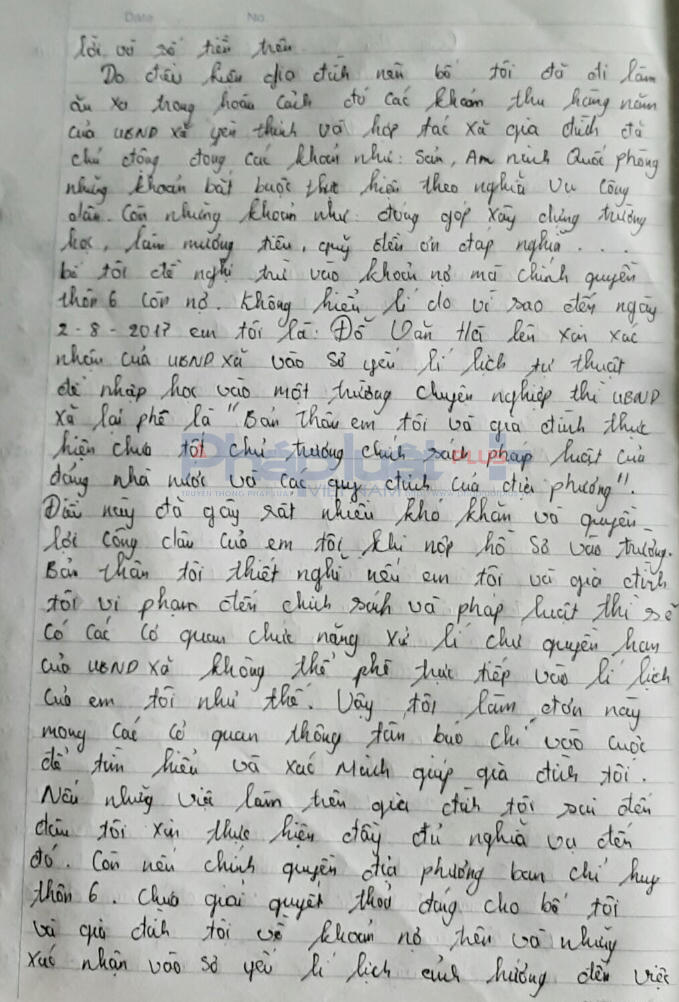 Date No.
lời về số tiền trên.
Do điều kiện gia đình nên bố tôi đã đi làm
ăn xa trong hoàn cảnh đó các khoản thu hàng năm
của UBND xã yên thịnh và hợp tác xã gia đình đã
chủ động đóng các khoản như: Sản, An ninh Quốc phòng
những khoản bắt buộc thực hiện theo nghĩa vụ công
dân. Còn những khoản như: đóng góp xây dựng trường
học, làm mương tiêu, quỹ đền ơn đáp nghĩa . . .
bố tôi đề nghị trừ vào khoản nợ mà chính quyền
thôn 6 còn nợ. Không hiểu lí do vì sao đến ngày
2-8-2017 em tôi là: Đỗ Văn Hà lên xin xác
nhận của UBND xã vào sơ yếu lí lịch tự thuật
để nhập học vào một trường chuyên nghiệp thì UBND
xã lại phê là "Bản thân em tôi và gia đình thực
hiện chưa tốt chủ trương chính sách pháp luật của
đảng nhà nước và các quy định của địa phương".
Pháp luật PLUS
TRUYỀN THÔNG PHÁP LUẬT VIỆT NAM
Điều này đã gây rất nhiều khó khăn và quyền
lợi công dân của em tôi khi nộp hồ sơ vào trường.
Bản thân tôi thiết nghĩ nếu em tôi và gia đình
tôi vi phạm đến chính sách và pháp luật thì sẽ
có các cơ quan chức năng xử lí chứ quyền hạn
của UBND xã không thể phê trực tiếp vào lí lịch
của em tôi như thế. Vậy tôi làm đơn này
mong các cơ quan thông tấn báo chí vào cuộc
để tìm hiểu và xác Minh giúp gia đình tôi.
Nếu những việc làm trên gia đình tôi sai đến
đâu tôi xin thực hiện đầy đủ nghĩa vụ đến
đó. Còn nếu chính quyền địa phương ban chỉ huy
thôn 6. Chưa giải quyết thoả đáng cho bố tôi
và gia đình tôi về khoản nợ trên và những
xác nhận vào sơ yếu lí lịch ảnh hưởng đến việc